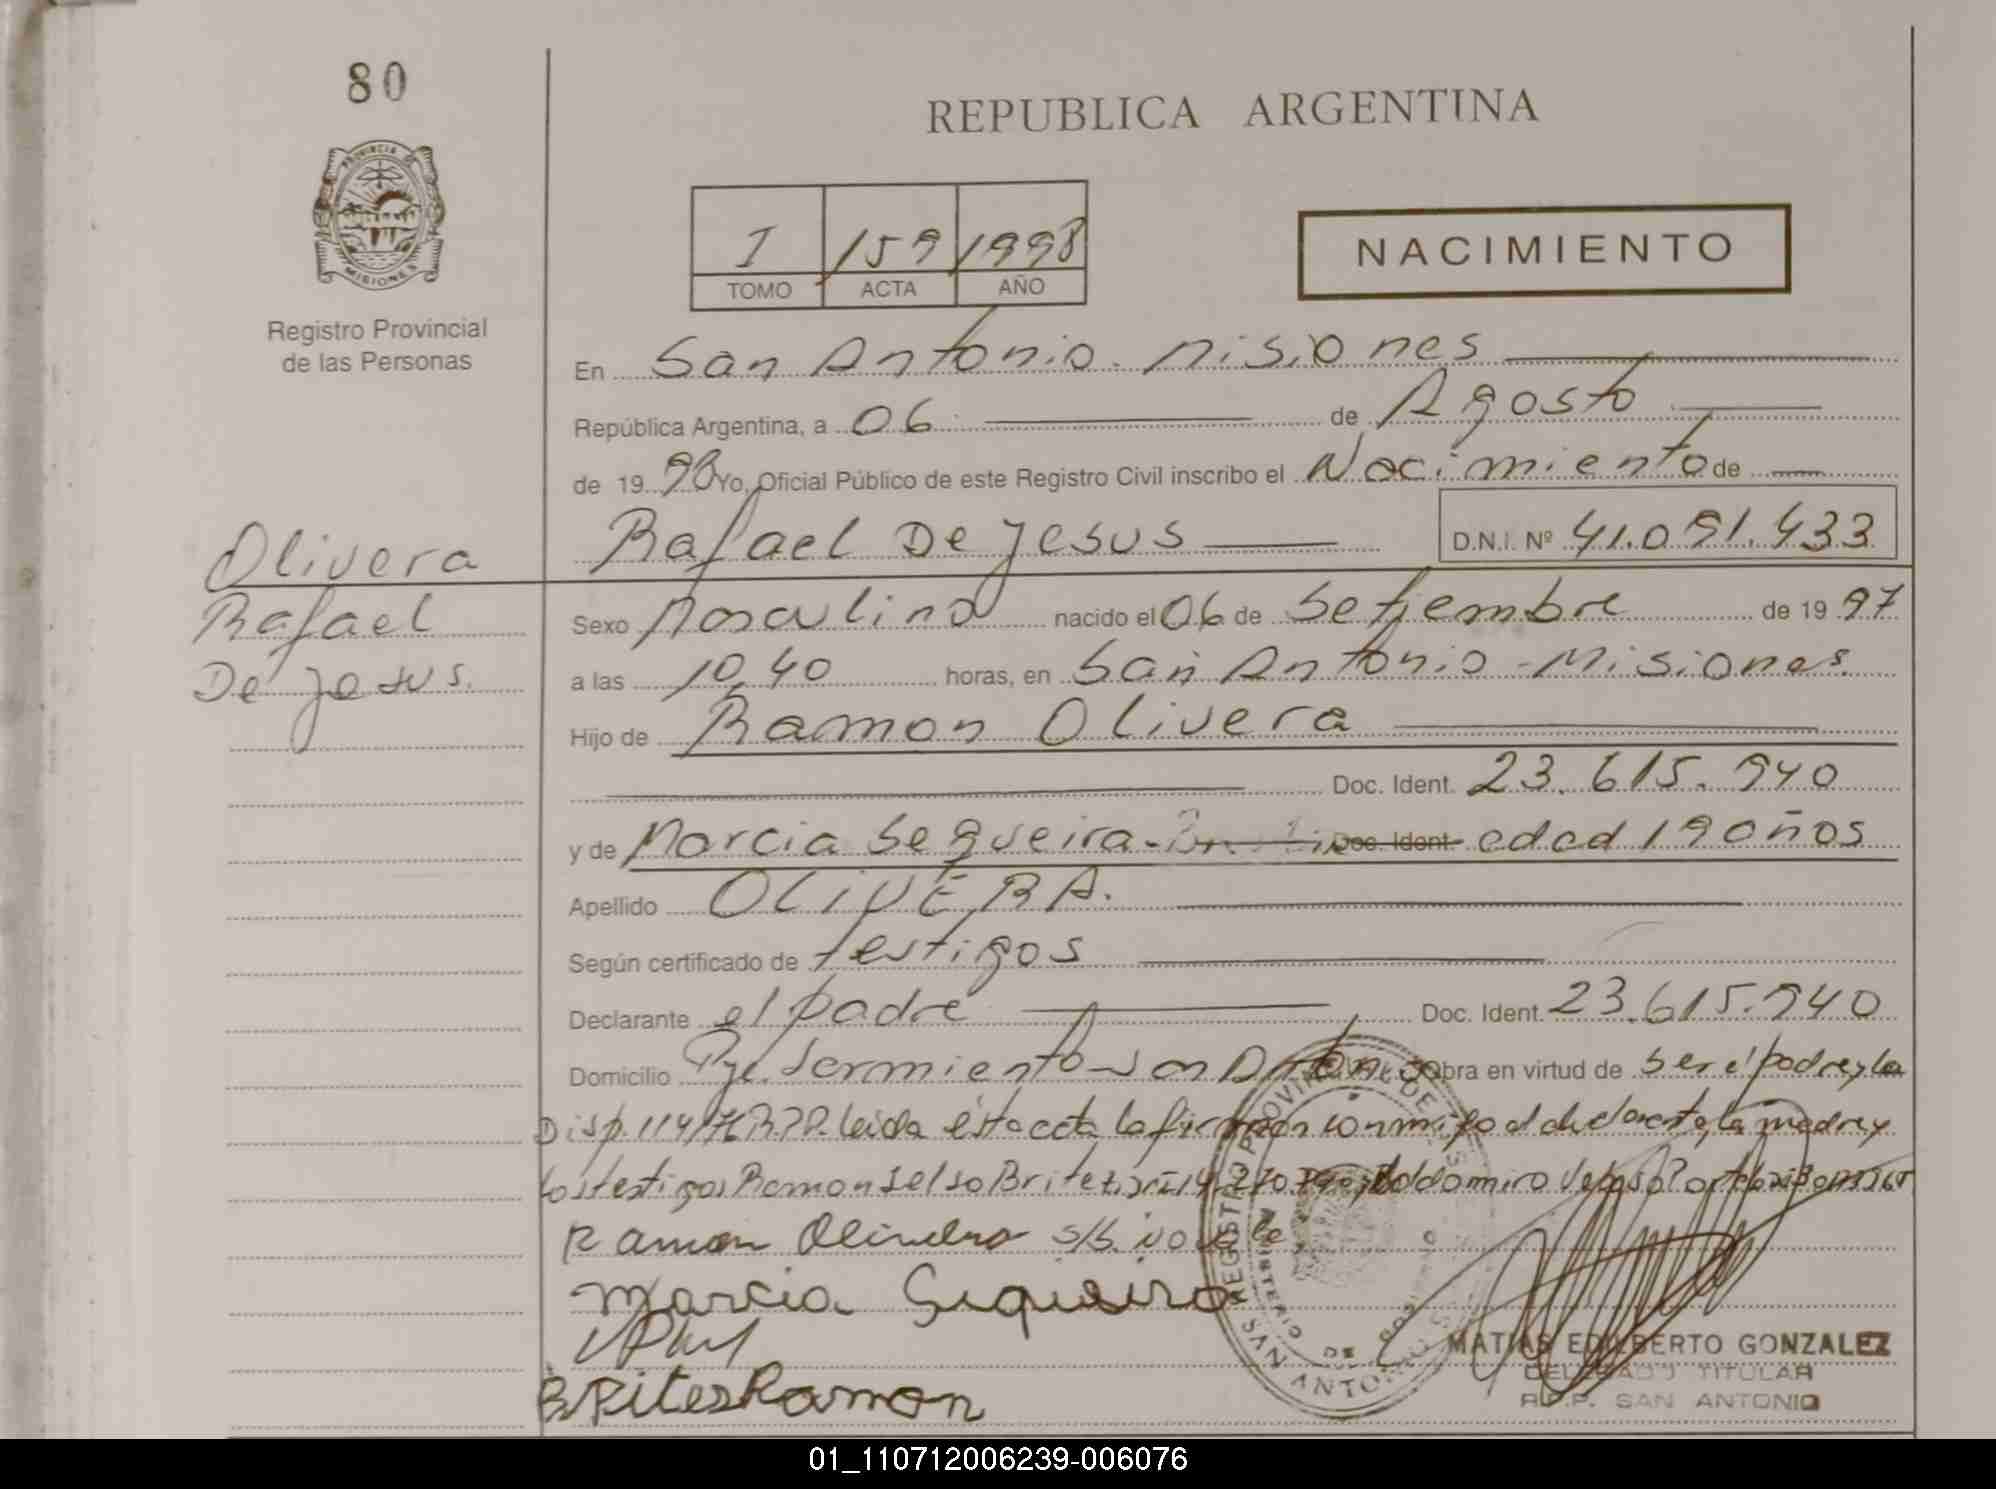 80
REPUBLICA ARGENTINA
PROVINCIA DE MISIONES
Registro Provincial
de las Personas
I 159 1998
TOMO ACTA AÑO
NACIMIENTO
En San Antonio. Misiones
República Argentina, a 06 de Agosto
de 19 98 Yo, Oficial Público de este Registro Civil inscribo el Nacimiento de
Rafael De Jesus D.N.I. Nº 41.091.433
Olivera
Rafael
De Jesus.
Sexo Masculino nacido el 06 de Setiembre de 19 97
a las 10,40 horas, en San Antonio - Misiones.
Hijo de Ramon Olivera
Doc. Ident. 23.615.940
y de Marcia Sequeira - Doc. Ident edad 19 años
Apellido OLIVERA.
Según certificado de testigos
Declarante el padre Doc. Ident. 23.615.940
Domicilio Pje. Sarmiento - San Antonio Obra en virtud de ser el padre y la
Disp. 114/ R.P.P. leida ésta acta la firman conmigo el declarante, la madre y
los testigos Ramon Selso Britez
Ramon Oliveira
Marcia Siqueira
BRitez Ramon
REGISTRO PROVINCIAL DE LAS
MINISTERIO DE GOBIERNO
SAN ANTONIO
MATIAS EDILBERTO GONZALEZ
DELEGADO TITULAR
R.P.P. SAN ANTONIO
01_110712006239-006076